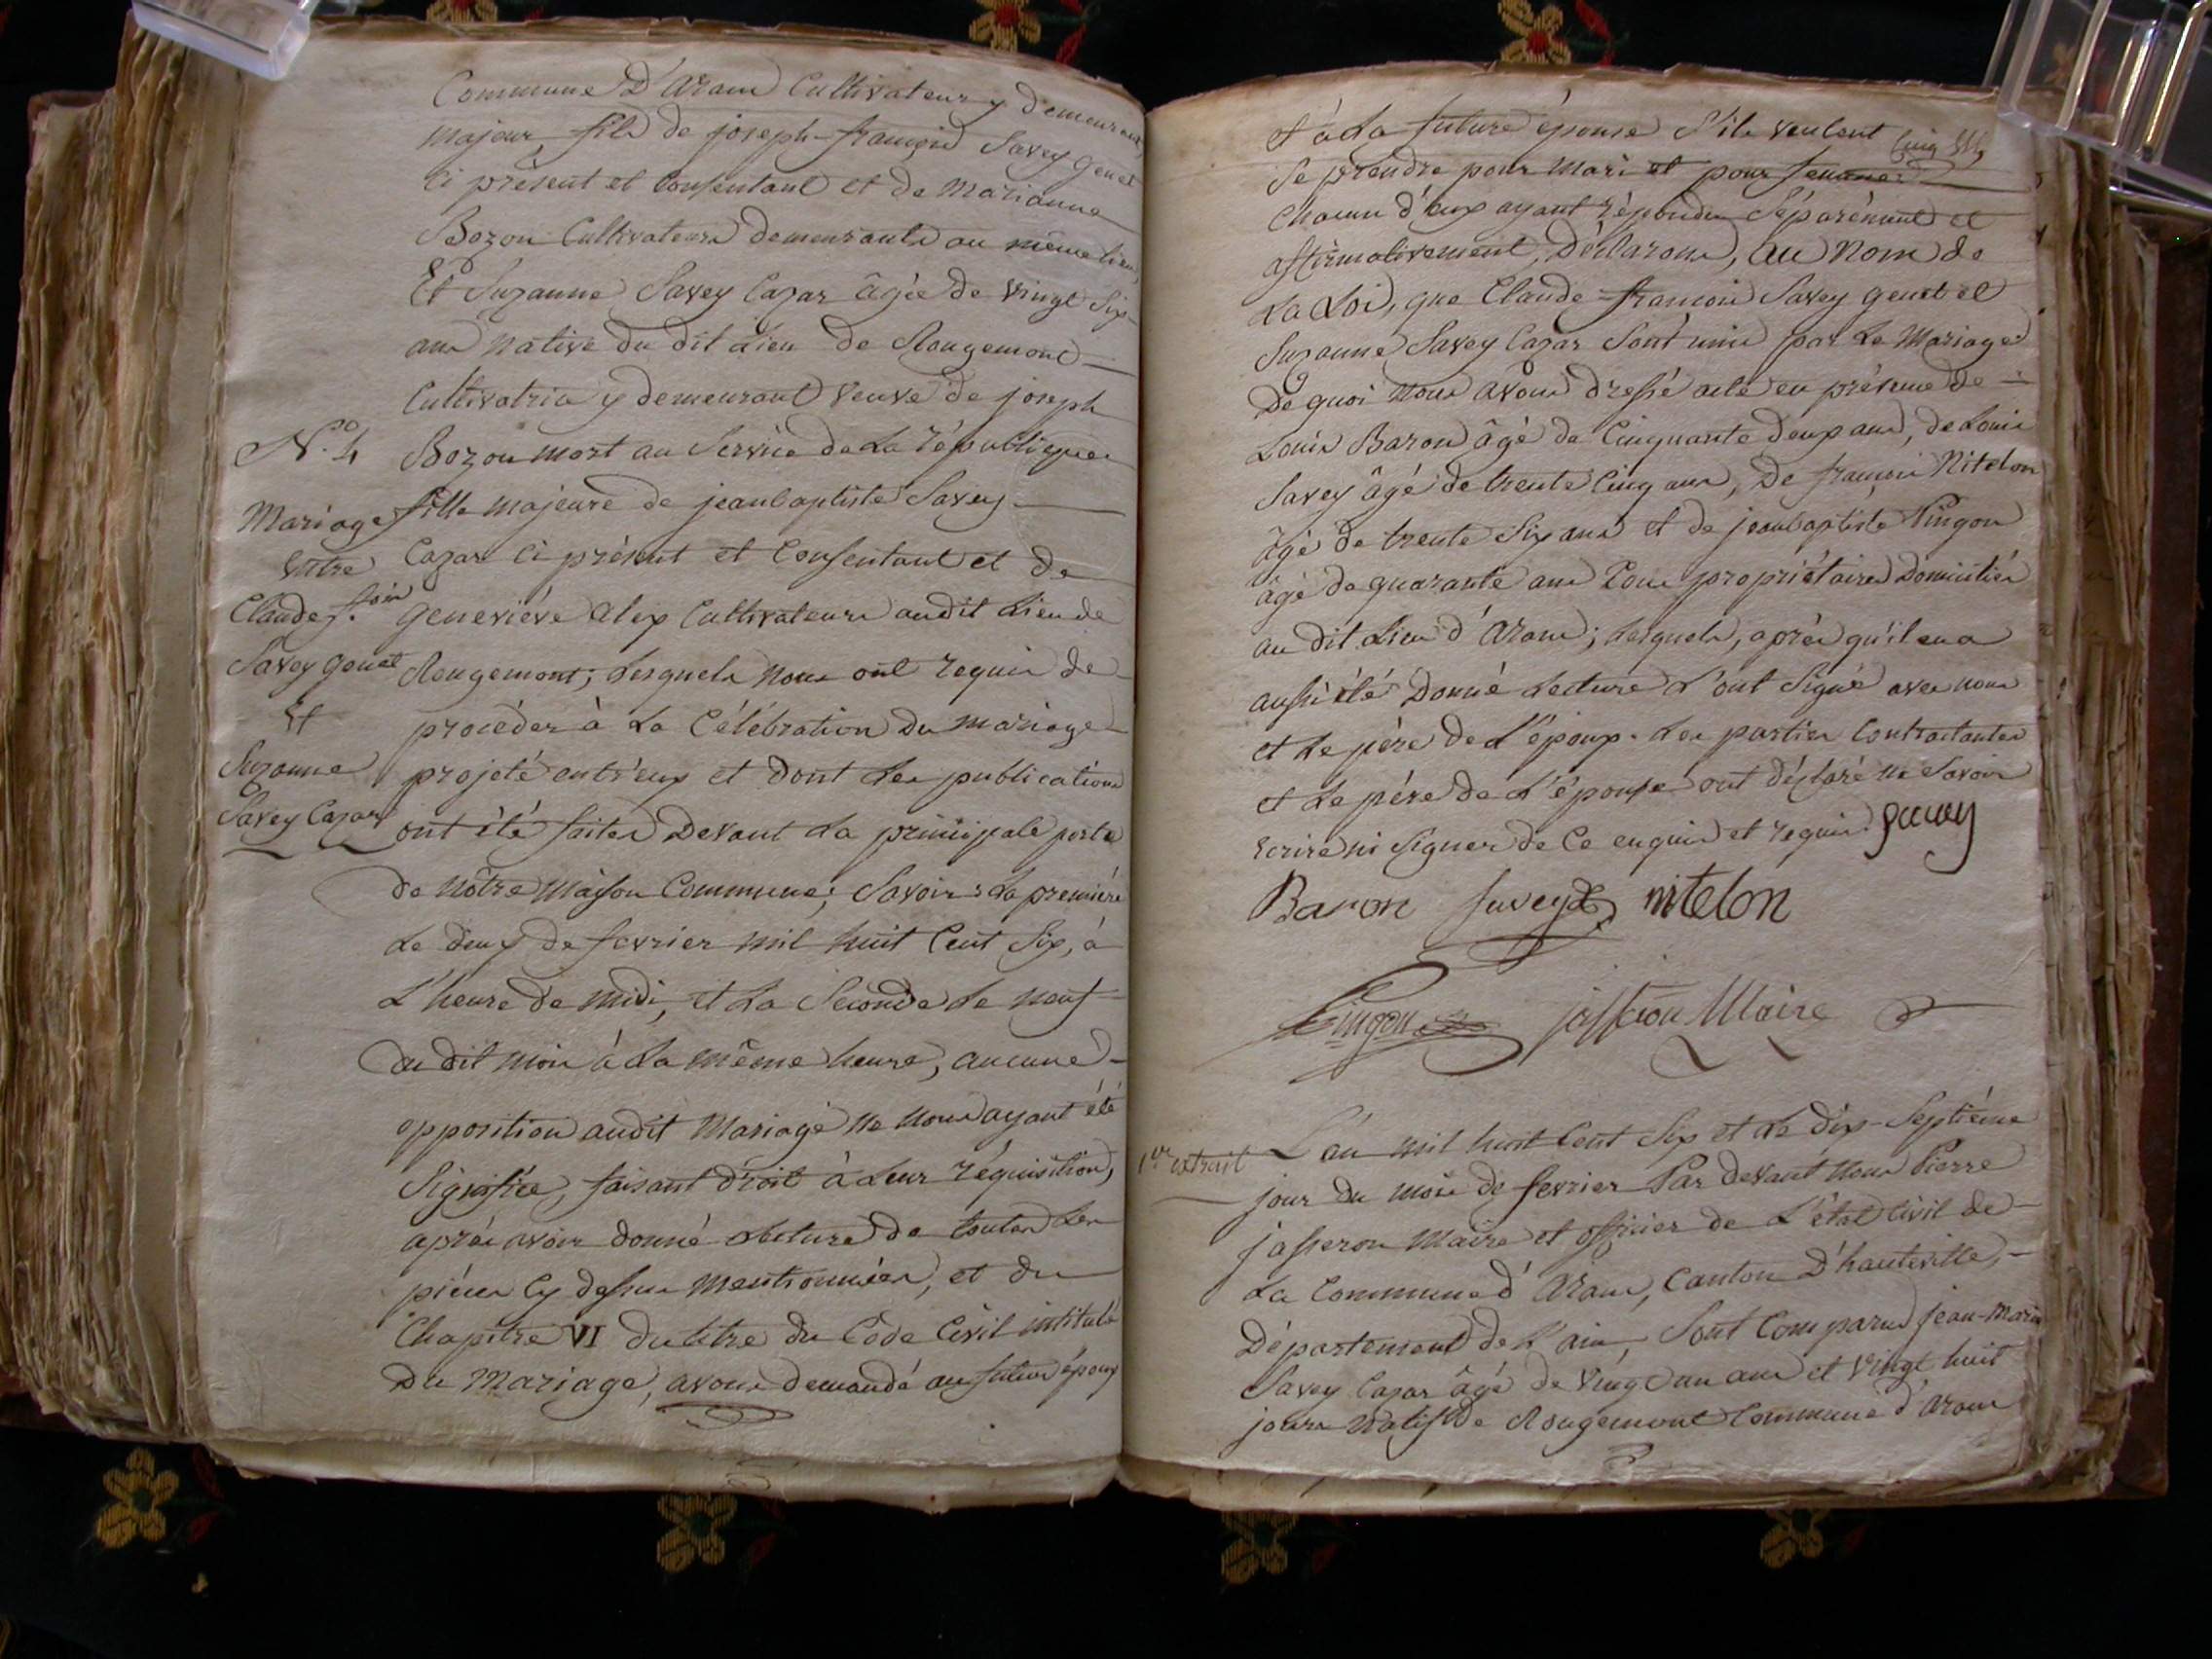 Commune D'aranc Cultivateur y demeurant,
majeur, fils de joseph-françois Savey genet
ci présent et Consentant et de Marianne
Bozon Cultivateurs demeurants au même lieu,
Et Suzanne Savey Cazar âgée de vingt Six
ans native du dit Lieu de Rougemont
Cultivatrice y demeurant veuve de joseph
Bozon mort au Service de La république
fille majeure de jeanbaptiste Savey
Cazar ci présent et Consentant et de
geneviéve alex Cultivateurs audit Lieu de
Rougemont; Lesquels nous ont requis de
procéder à La Célébration du mariage
projeté entr'eux et dont Les publications
ont été faites Devant La principale porte
de nôtre maison Commune; Savoir: La premiére
Le deux de fevrier mil huit Cent Six, à
L'heure de midi, et La Seconde Le neuf
du dit mois à La même heure, aucune
opposition audit Mariage ne nous ayant été
Signifiée, faisant droit à Leur réquisition,
aprés avoir donné Lecture de toutes Les
piéces cy dessus mentionnées, et du
Chapitre VI du titre du Code Civil intitulé
Du Mariage, avons demandé au futur époux
N.° 4
Mariage
Entre
Claude f.çois
Savey genet
Et
Suzanne
Savey Cazar
et à La future épouse S'ils veulent
Se prendre pour mari et pour femme
Chacun d'eux ayant répondu Séparément et
affirmativement, Déclarons, au Nom de
La Loi, que Claude-françois Savey genet et
Suzanne Savey Cazar Sont unis par Le Mariage
De quoi nous avons dressé acte en présence de
Louis Baron âgé de Cinquante deux ans, de Louis
Savey âgé de trente Cinq ans, De françois Nitelon
âgé de trente Six ans et de jeanbaptiste Pingon
âgé de quarante ans Tous propriétaires Domiciliés
au dit Lieu d'aranc; Lesquels, aprés qu'il en a
aussi été Donné Lecture L'ont Signé avec nous
et Le pére de L'époux. Les parties Contractantes
et Le pére de L'épouse ont déclaré ne Savoir
écrire ni Signer de Ce enquis et requis. Savey
Baron Savey nitelon
Pingon jasseron Maire
1er extrait
L'an mil huit Cent Six et Le dix-Septiéme
jour du mois de fevrier Par devant Nous Pierre
jasseron Maire et officier de L'état Civil de
La Commune d'aranc, Canton D'hauteville,
Département de L'ain, Sont Comparus jean-Marie
Savey Cazar âgé de vingt un ans et vingt huit
jours natif de Rougemont Commune d'aranc